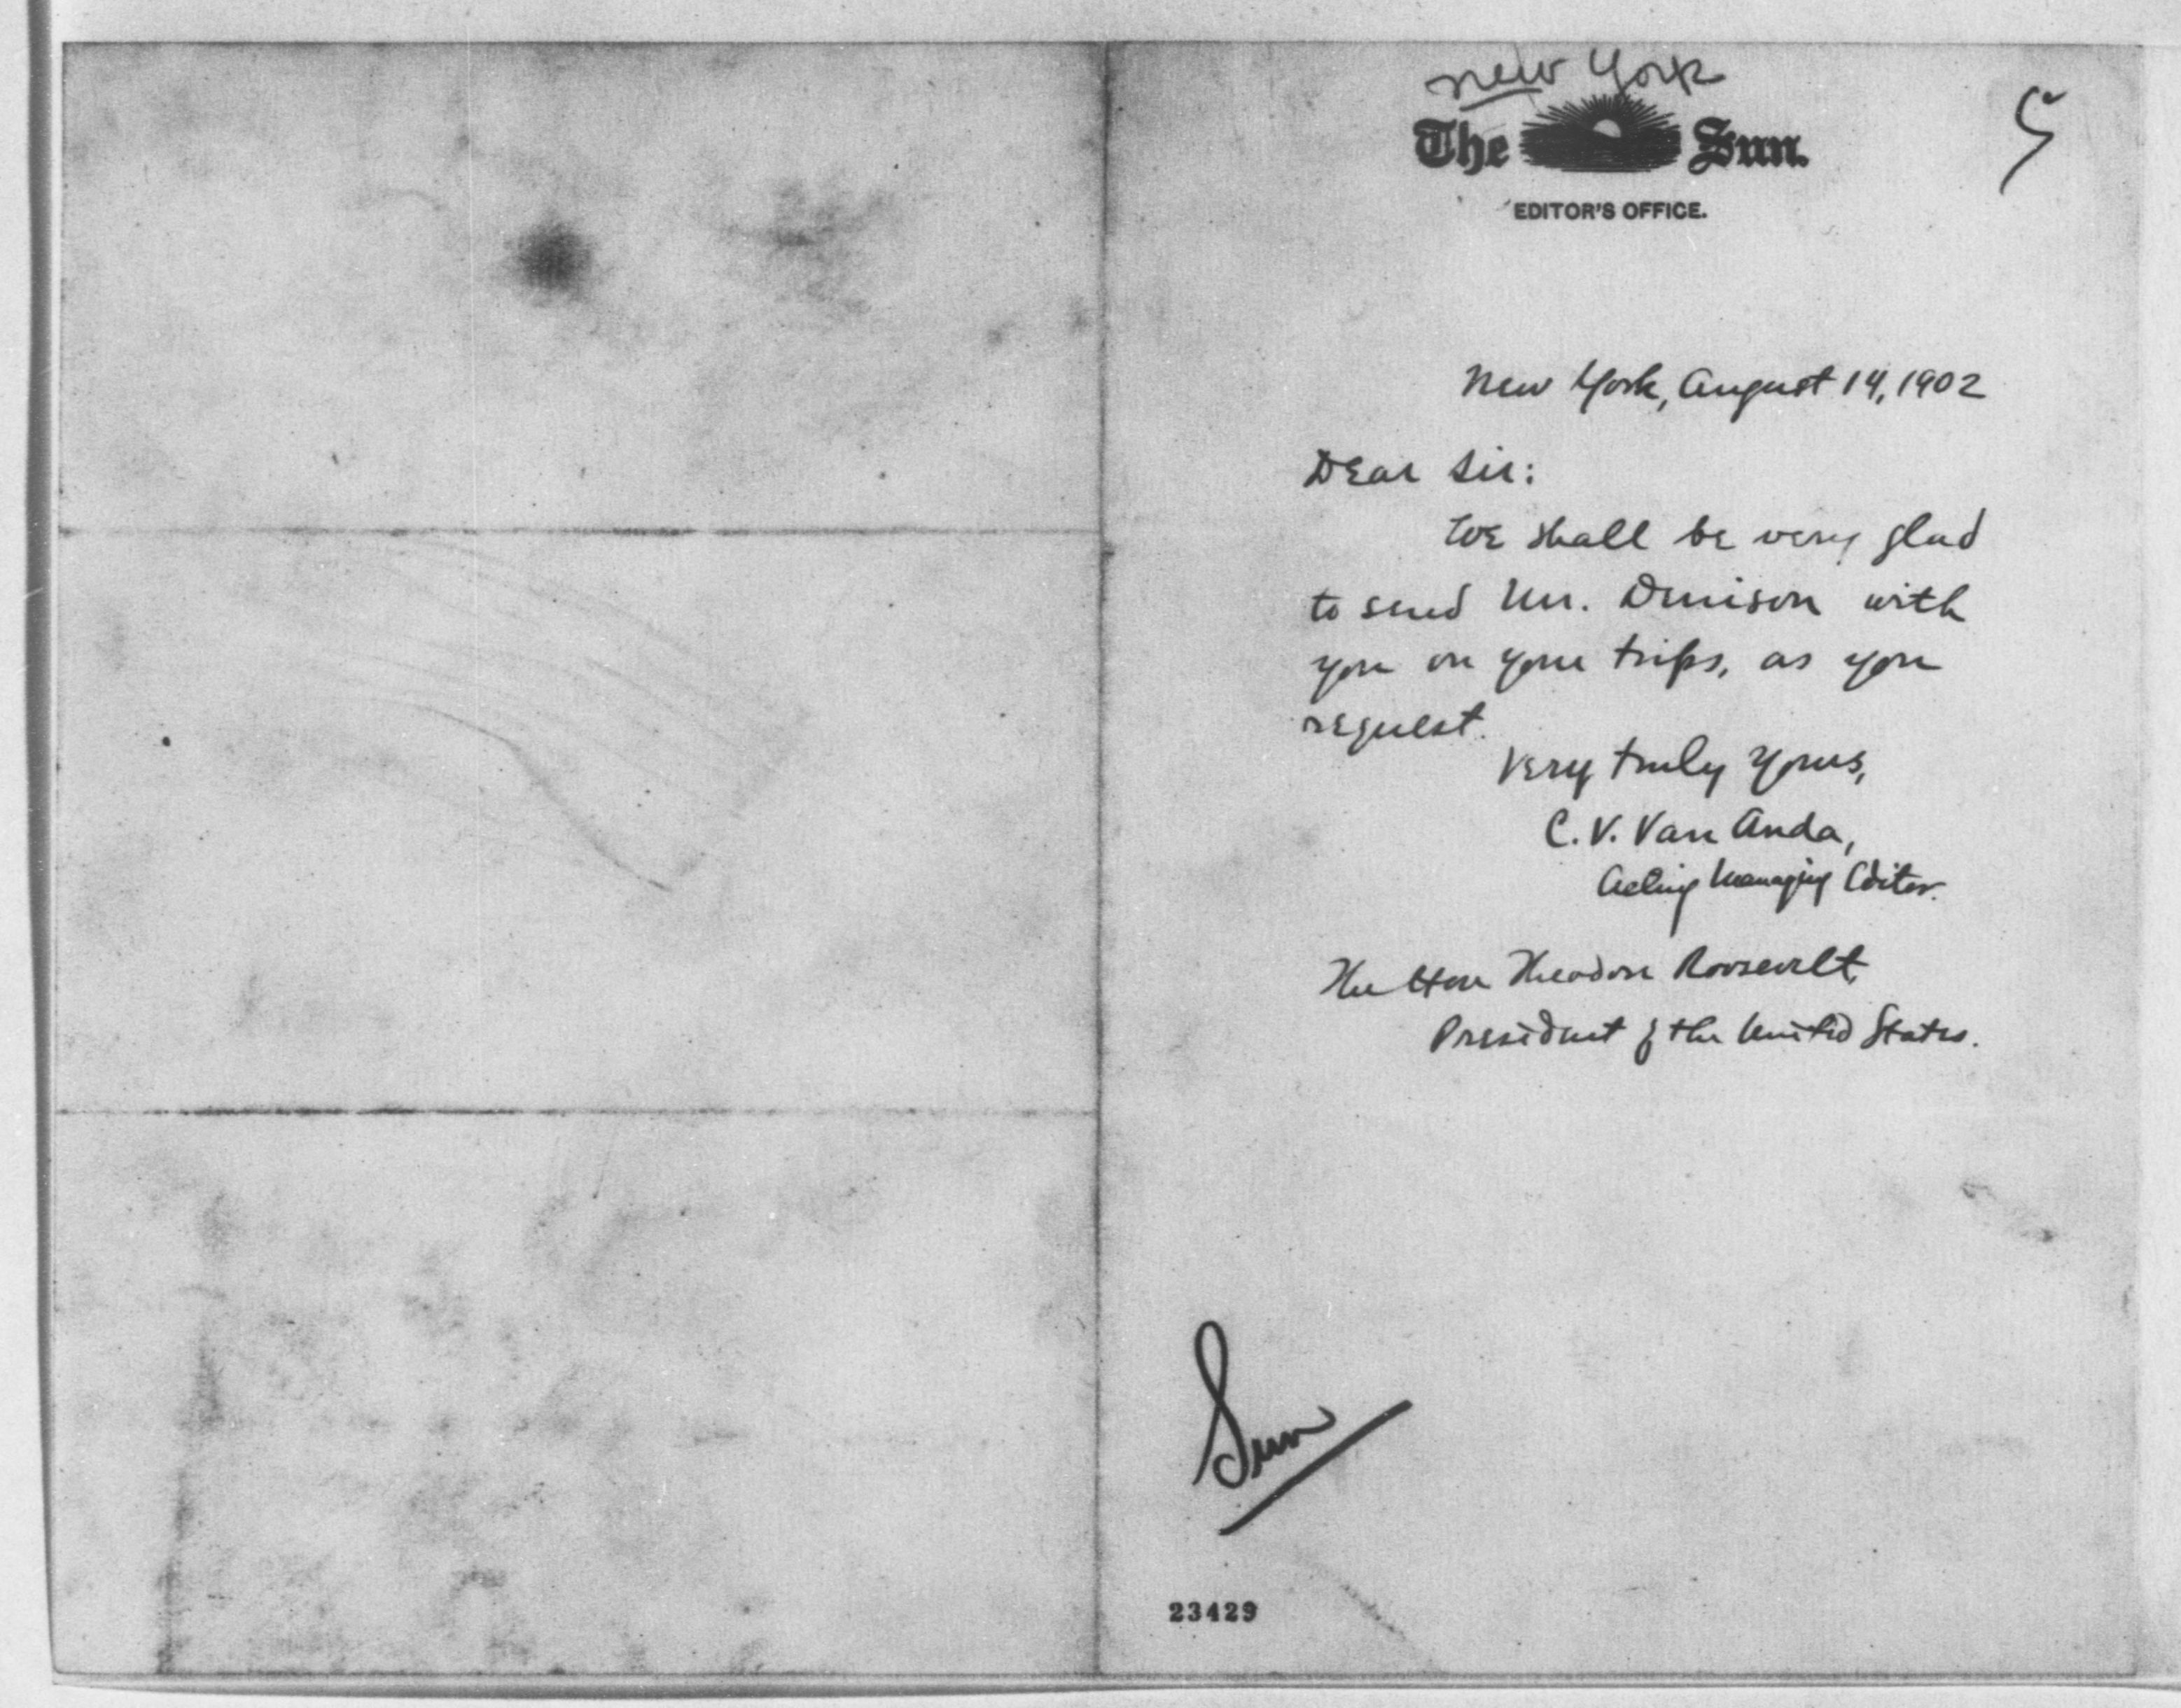 New York
The Sun.
EDITOR'S OFFICE.
New York, August 14, 1902
Dear Sir:
We shall be very glad
to send Mr. Dennison with
you on your trips, as you
request.
Very truly yours,
C. V. Van Anda,
Acting Managing Editor.
The Hon Theodore Roosevelt,
President of the United States.
Sun
23429